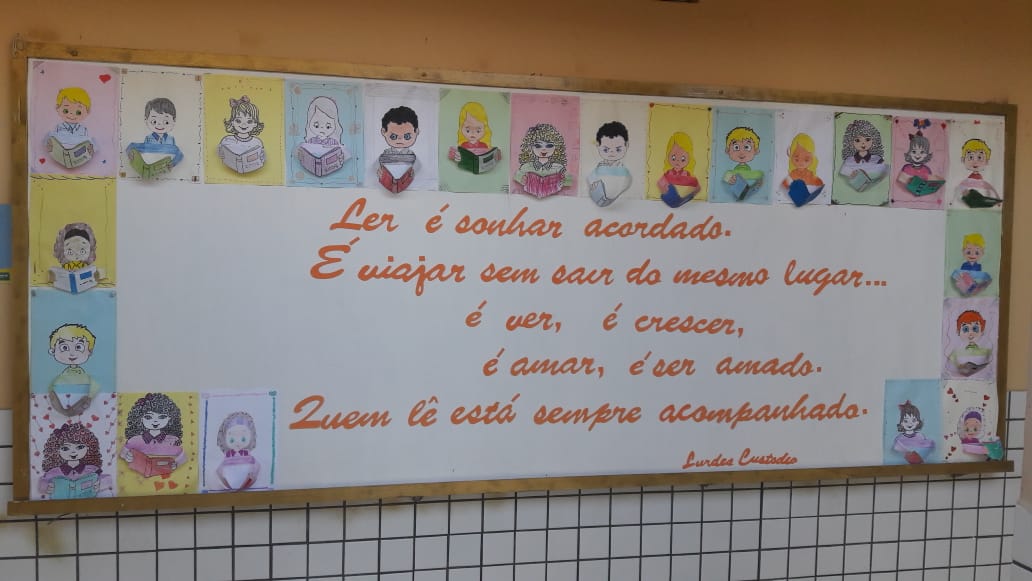 Ler é sonhar acordado.
É viajar sem sair do mesmo lugar...
é ver, é crescer,
é amar, é ser amado.
Quem lê está sempre acompanhado.
Lurdes Custodeo